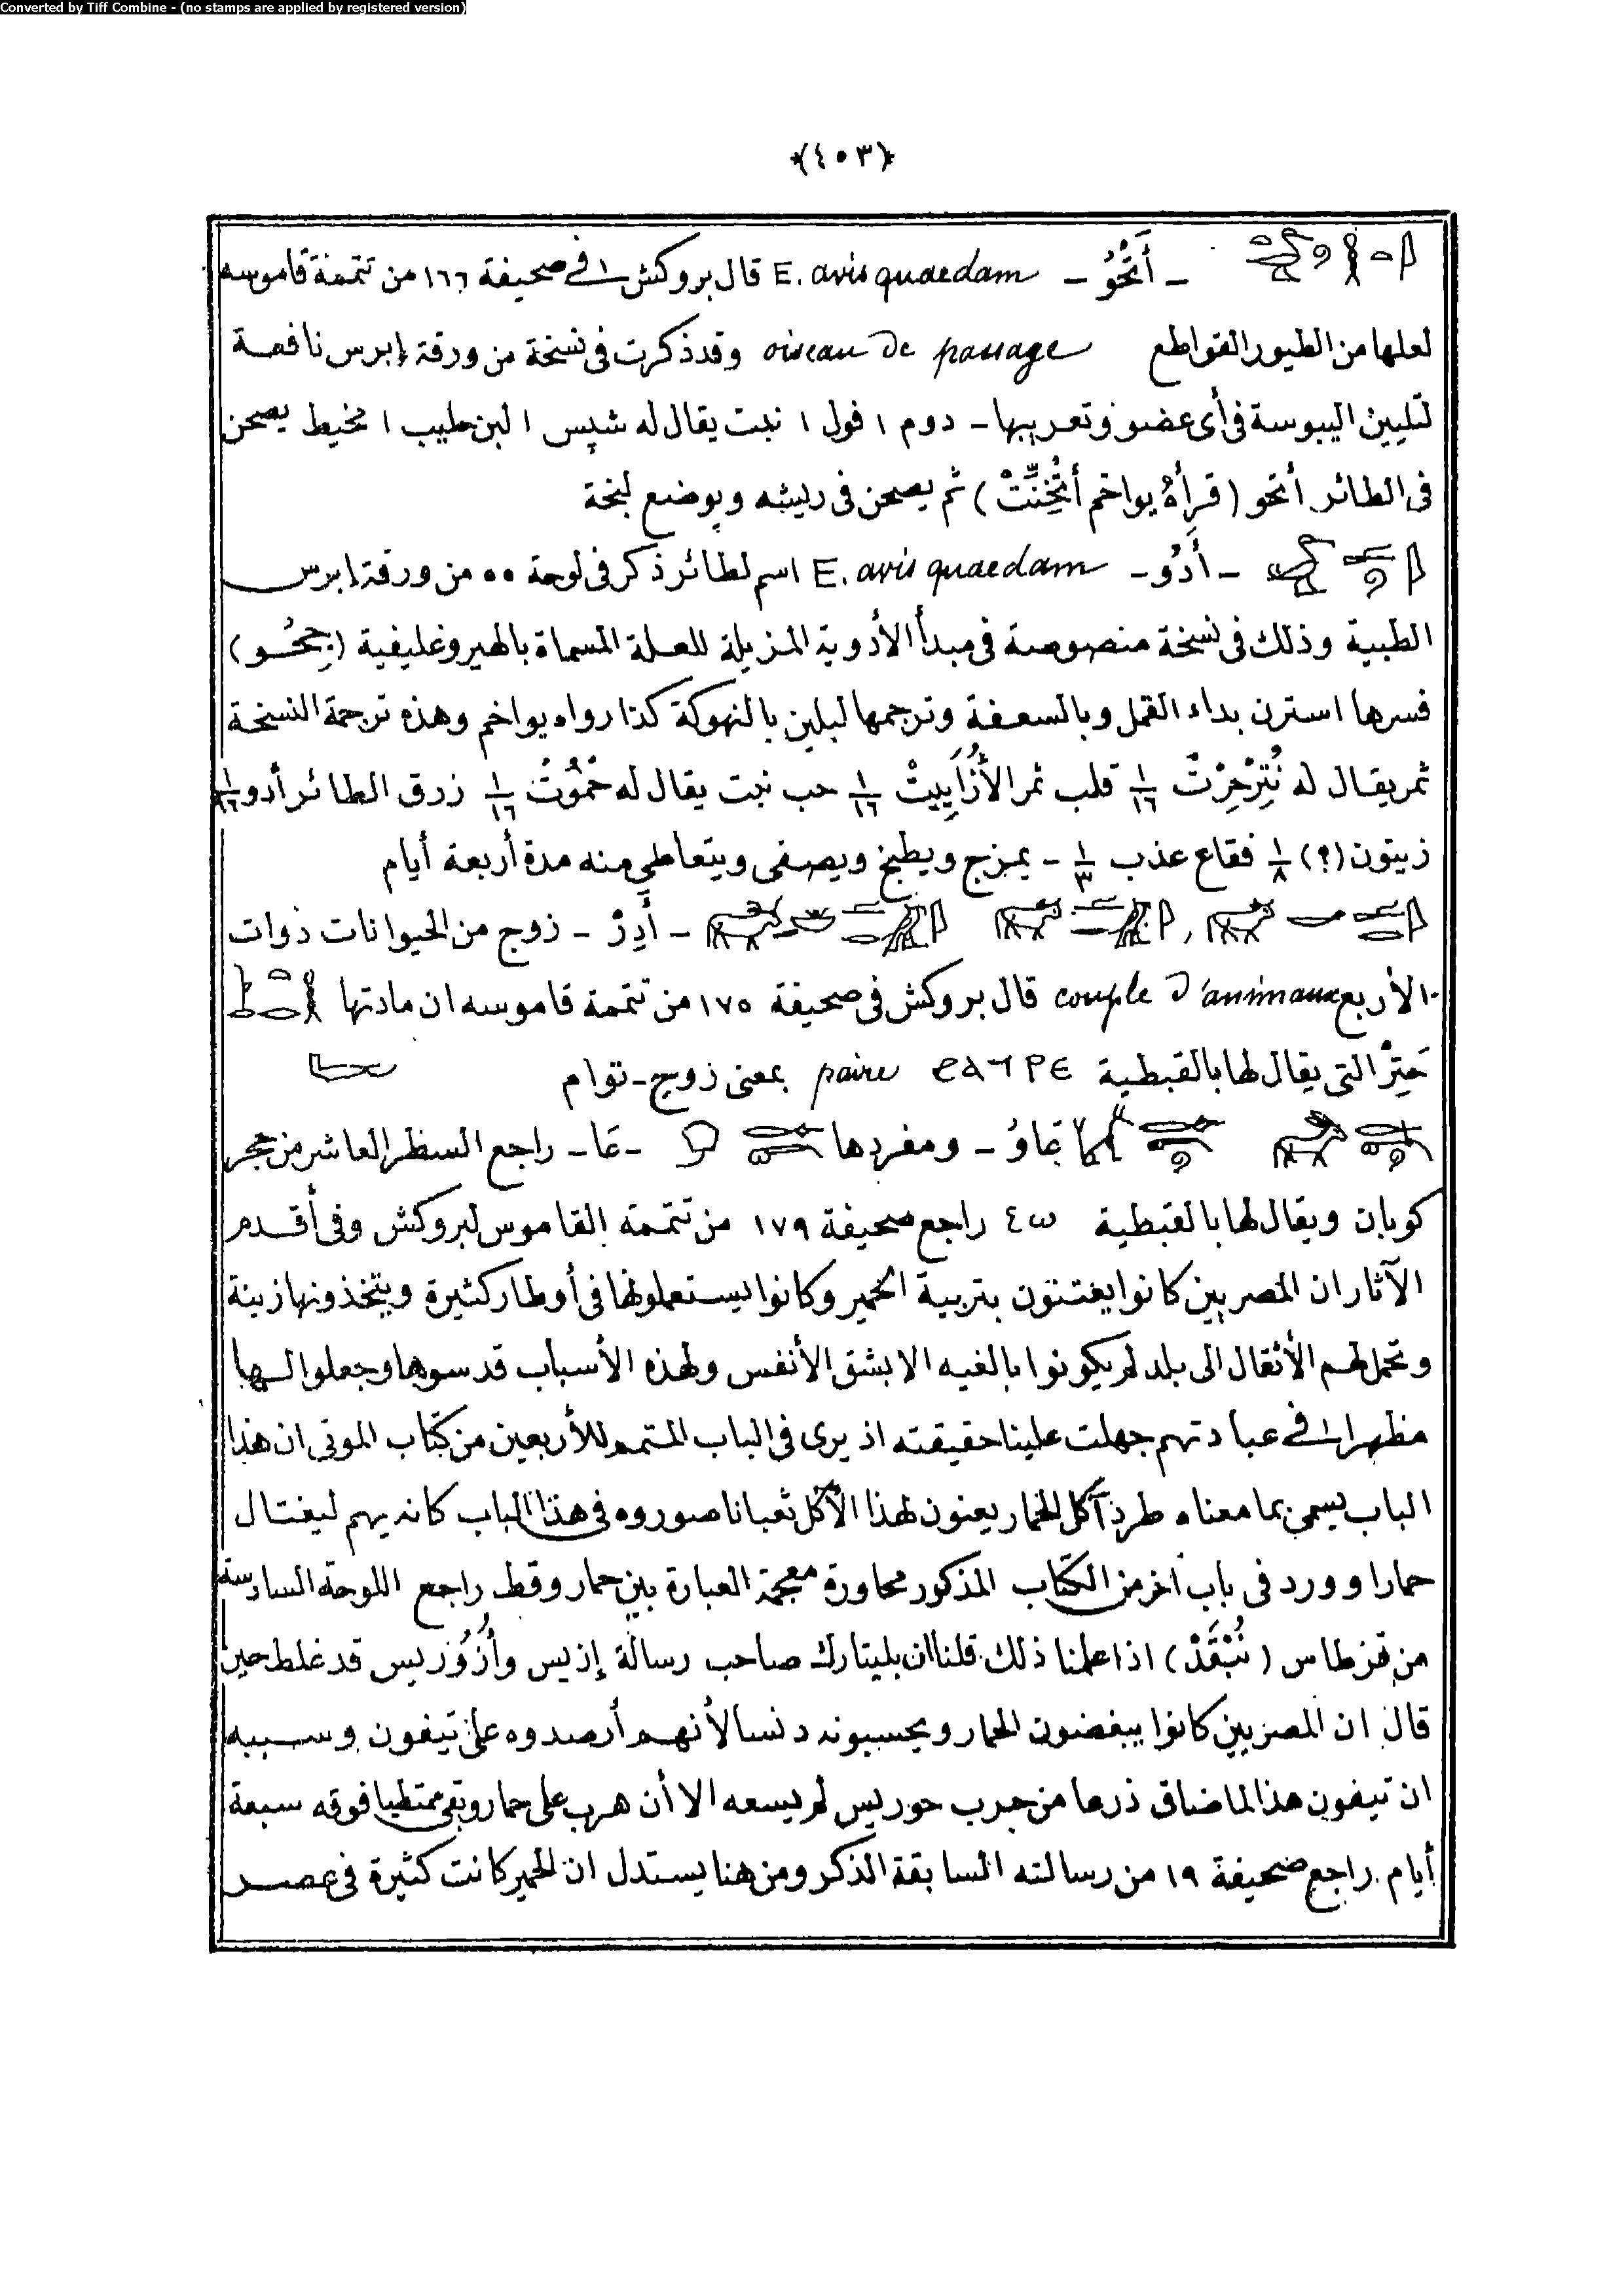 Converted by Tiff Combine - (no stamps are applied by registered version)
﴿٤٠٣﴾
- أَتْحُو - E. avis quaedam قال بروكش في صحيفة ١٦٦ من تتمة قاموسه
لعلها من الطيور القواطع oiseau de passage وقد ذكرت فى نسخة من ورقة إبرس نافعة
لتليين اليبوسة فى أى عضو وتعريبها - دوم ١ فول ١ نبت يقال له شپس ١ لبن حليب ١ مخيط يصحن
فى الطائر أتحو (قرأه يواخم أتْخِنِّتْ) ثم يصحن فى ريشه ويوضع لبخة
- أَدُو - E. avis quaedam اسم لطائر ذكر فى لوحة ٥٥ من ورقة إبرس
الطبية وذلك فى نسخة منصوصة فى مبدأ الأدوية المزيلة للعلة المسماة بالهيروغليفية
فسرها استرن بداء القمل وبالسعفة وترجمها لبلين بالنهوكة كذا رواه يواخم وهذه ترجمة النسخة
ثمر يقال له ١/١٦ قلب ثمر ١/١٦ حب نبت يقال له ١/١٦ زرق الطائر أدو ١/١٦
زيتون (؟) ١/٨ فقاع عذب ١/٣ - يمزج ويطبخ ويصفى ويتعاطى منه مدة أربعة أيام
- أَدِرْ - زوج من الحيوانات ذوات
الأربع couple d'animaux قال بروكش فى صحيفة ١٧٥ من تتمة قاموسه ان مادتها
حَتِرْ التى يقال لها بالقبطية ϩⲁⲧⲣⲉ paire بمعنى زوج - توام
عَاوُ - ومفردها - عَا - راجع السطر العاشر من حجر
كوبان ويقال لها بالقبطية ⲉⲱ راجع صحيفة ١٧٩ من تتمة القاموس لبروكش وفى أقدم
الآثار ان المصريين كانوا يعتنون بتربية الحمير وكانوا يستعملونها فى أوطار كثيرة ويتخذونها زينة
وتحمل لهم الأثقال الى بلد لم يكونوا بالغيه الا بشق الأنفس ولهذه الأسباب قدسوها وجعلوا لها
مظهرا فى عبادتهم جهلت علينا حقيقته اذ يرى فى الباب المتمم للأربعين من كتاب الموتى ان هذا
الباب يسمى بما معناه طرد آكل الحمار يعنون بهذا الآكل ثعبانا صوروه فى هذا الباب كانه يهم ليغتال
حمارا وورد فى باب آخر من الكتاب المذكور محاورة معجمة العبارة بين حمار وقط راجع اللوحة السادسة
من قرطاس (نُبْقَدْ) اذا علمنا ذلك قلنا ان بليتارك صاحب رسالة إزيس وأُزُوريس قد غلط حين
قال ان المصريين كانوا يبغضون الحمار ويحسبونه دنسا لأنهم أرصدوه على تيفون وسببه
ان تيفون هذا لما ضاق ذرعا من حرب حوريس لم يسعه الا أن هرب على حمار وبقى ممتطيا فوقه سبعة
أيام راجع صحيفة ١٩ من رسالته السابقة الذكر ومن هنا يستدل ان الحمير كانت كثيرة فى عصر